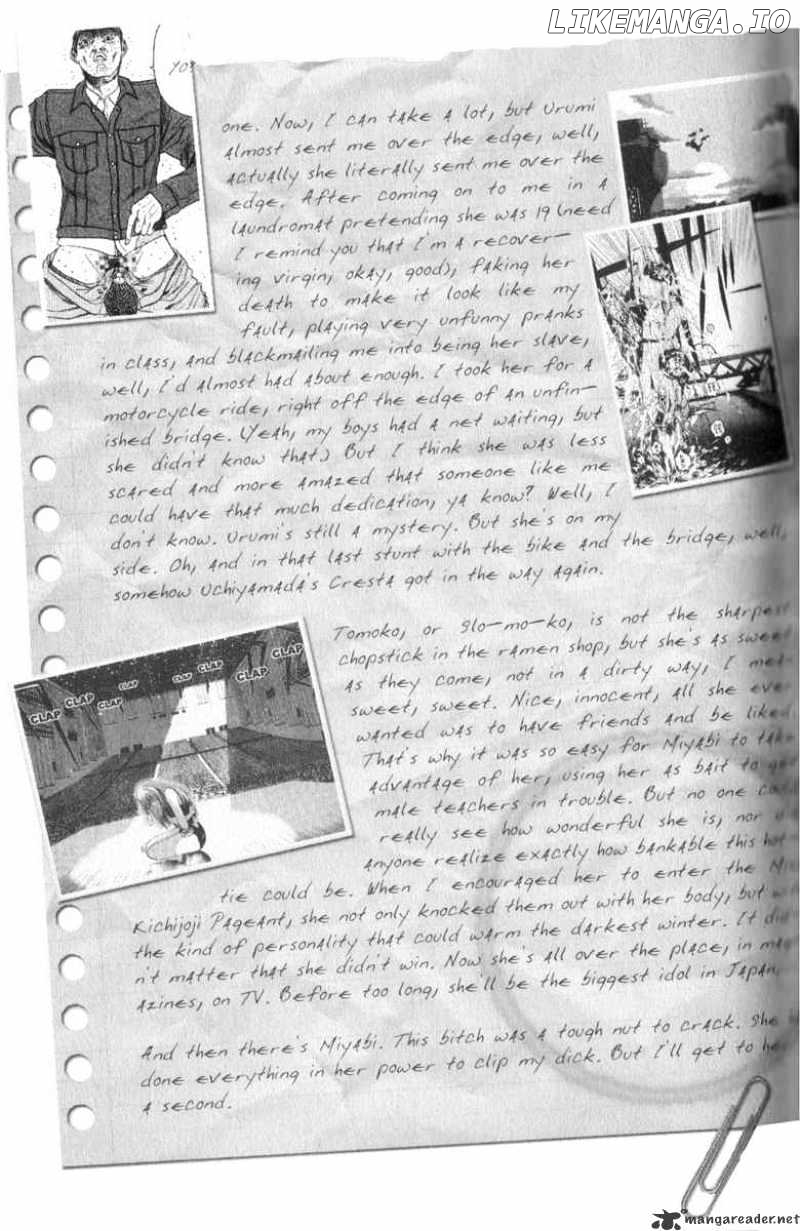 LIKEMANGA.IO
YO!
one. Now, I can take a lot, but Urumi
almost sent me over the edge, well,
actually she literally sent me over the
edge. After coming on to me in a
laundromat pretending she was 19 (need
I remind you that I'm a recover-
ing virgin, okay, good), faking her
death to make it look like my
fault, playing very unfunny pranks
in class, and blackmailing me into being her slave,
well, I'd almost had about enough. I took her for a
motorcycle ride, right off the edge of an unfin-
ished bridge. (Yeah, my boys had a net waiting, but
she didn't know that.) But I think she was less
scared and more amazed that someone like me
could have that much dedication, ya know? Well, I
don't know. Urumi's still a mystery. But she's on my
side. Oh, and in that last stunt with the bike and the bridge, well,
somehow Uchiyamada's Cresta got in the way again.
Tomoko, or slo-mo-ko, is not the sharpest
chopstick in the ramen shop, but she's as sweet
as they come, not in a dirty way, I
sweet, sweet. Nice, innocent, all she ever
wanted was to have friends and be liked.
That's why it was so easy for Miyabi to take
advantage of her, using her as bait to
male teachers in trouble. But no one
really see how wonderful she is, nor
anyone realize exactly how bankable this
tie could be. When I encouraged her to enter the
Kichijoji Pageant, she not only knocked them out with her body, but
the kind of personality that could warm the darkest winter. It
n't matter that she didn't win. Now she's all over the place, in
azines, on TV. Before too long, she'll be the biggest idol in Japan.
And then there's Miyabi. This bitch was a tough nut to crack. She
done everything in her power to clip my dick. But I'll get to
a second.
CLAP CLAP CLAP CLAP CLAP CLAP CLAP CLAP
mangareader.net